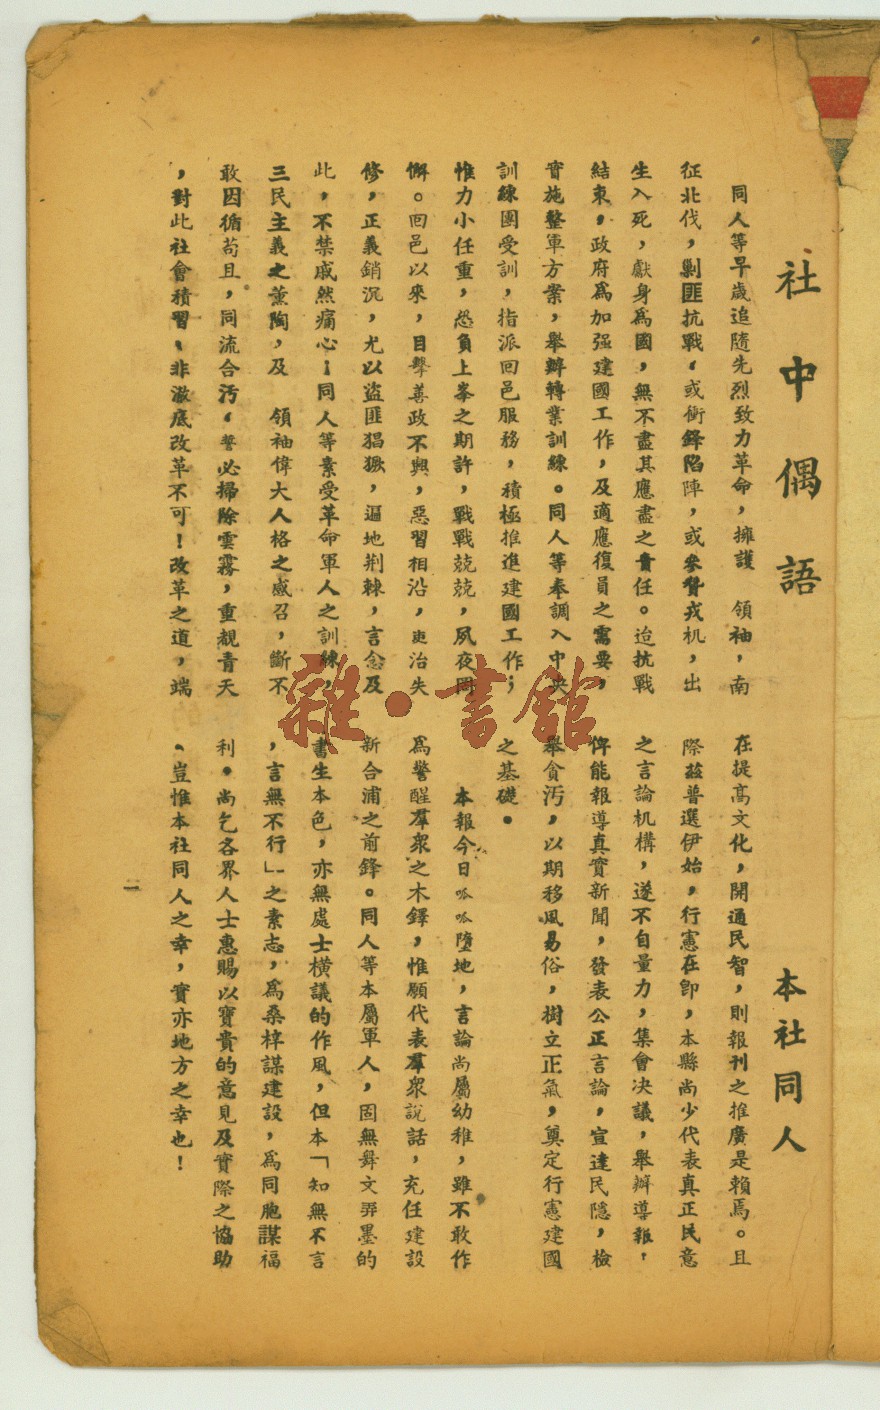 社中偶語
本社同人
同人等早歲追隨先烈致力革命，擁護　領袖，南
征北伐，剿匪抗戰，或衝鋒陷陣，或參贊戎机，出
生入死，獻身為國，無不盡其應盡之責任。迨抗戰
結束，政府為加强建國工作，及適應復員之需要，
實施整軍方案，舉辦轉業訓練。同人等奉調入中央
訓練團受訓，指派回邑服務，積極推進建國工作；
惟力小任重，恐負上峯之期許，戰戰兢兢，夙夜罔
懈。回邑以來，目擊善政不興，惡習相沿，吏治失
修，正義銷沉，尤以盜匪猖獗，遍地荆棘，言念及
此，不禁戚然痛心；同人等素受革命軍人之訓練，
三民主義之薰陶，及　領袖偉大人格之感召，斷不
敢因循苟且，同流合污，誓必掃除雲霧，重覩青天
，對此社會積習，非澈底改革不可！改革之道，端
在提高文化，開通民智，則報刊之推廣是賴焉。且
際茲普選伊始，行憲在即，本縣尚少代表真正民意
之言論机構，遂不自量力，集會決議，舉辦導報，
俾能報導真實新聞，發表公正言論，宣達民隱，檢
舉貪污，以期移風易俗，樹立正氣，奠定行憲建國
之基礎。
本報今日呱呱墮地，言論尚屬幼稚，雖不敢作
為警醒羣衆之木鐸，惟願代表羣衆說話，充任建設
新合浦之前鋒。同人等本屬軍人，固無舞文弄墨的
書生本色，亦無處士橫議的作風，但本「知無不言
，言無不行」之素志，為桑梓謀建設，為同胞謀福
利。尚乞各界人士惠賜以寶貴的意見及實際之協助
，豈惟本社同人之幸，實亦地方之幸也！
二
雜·書館